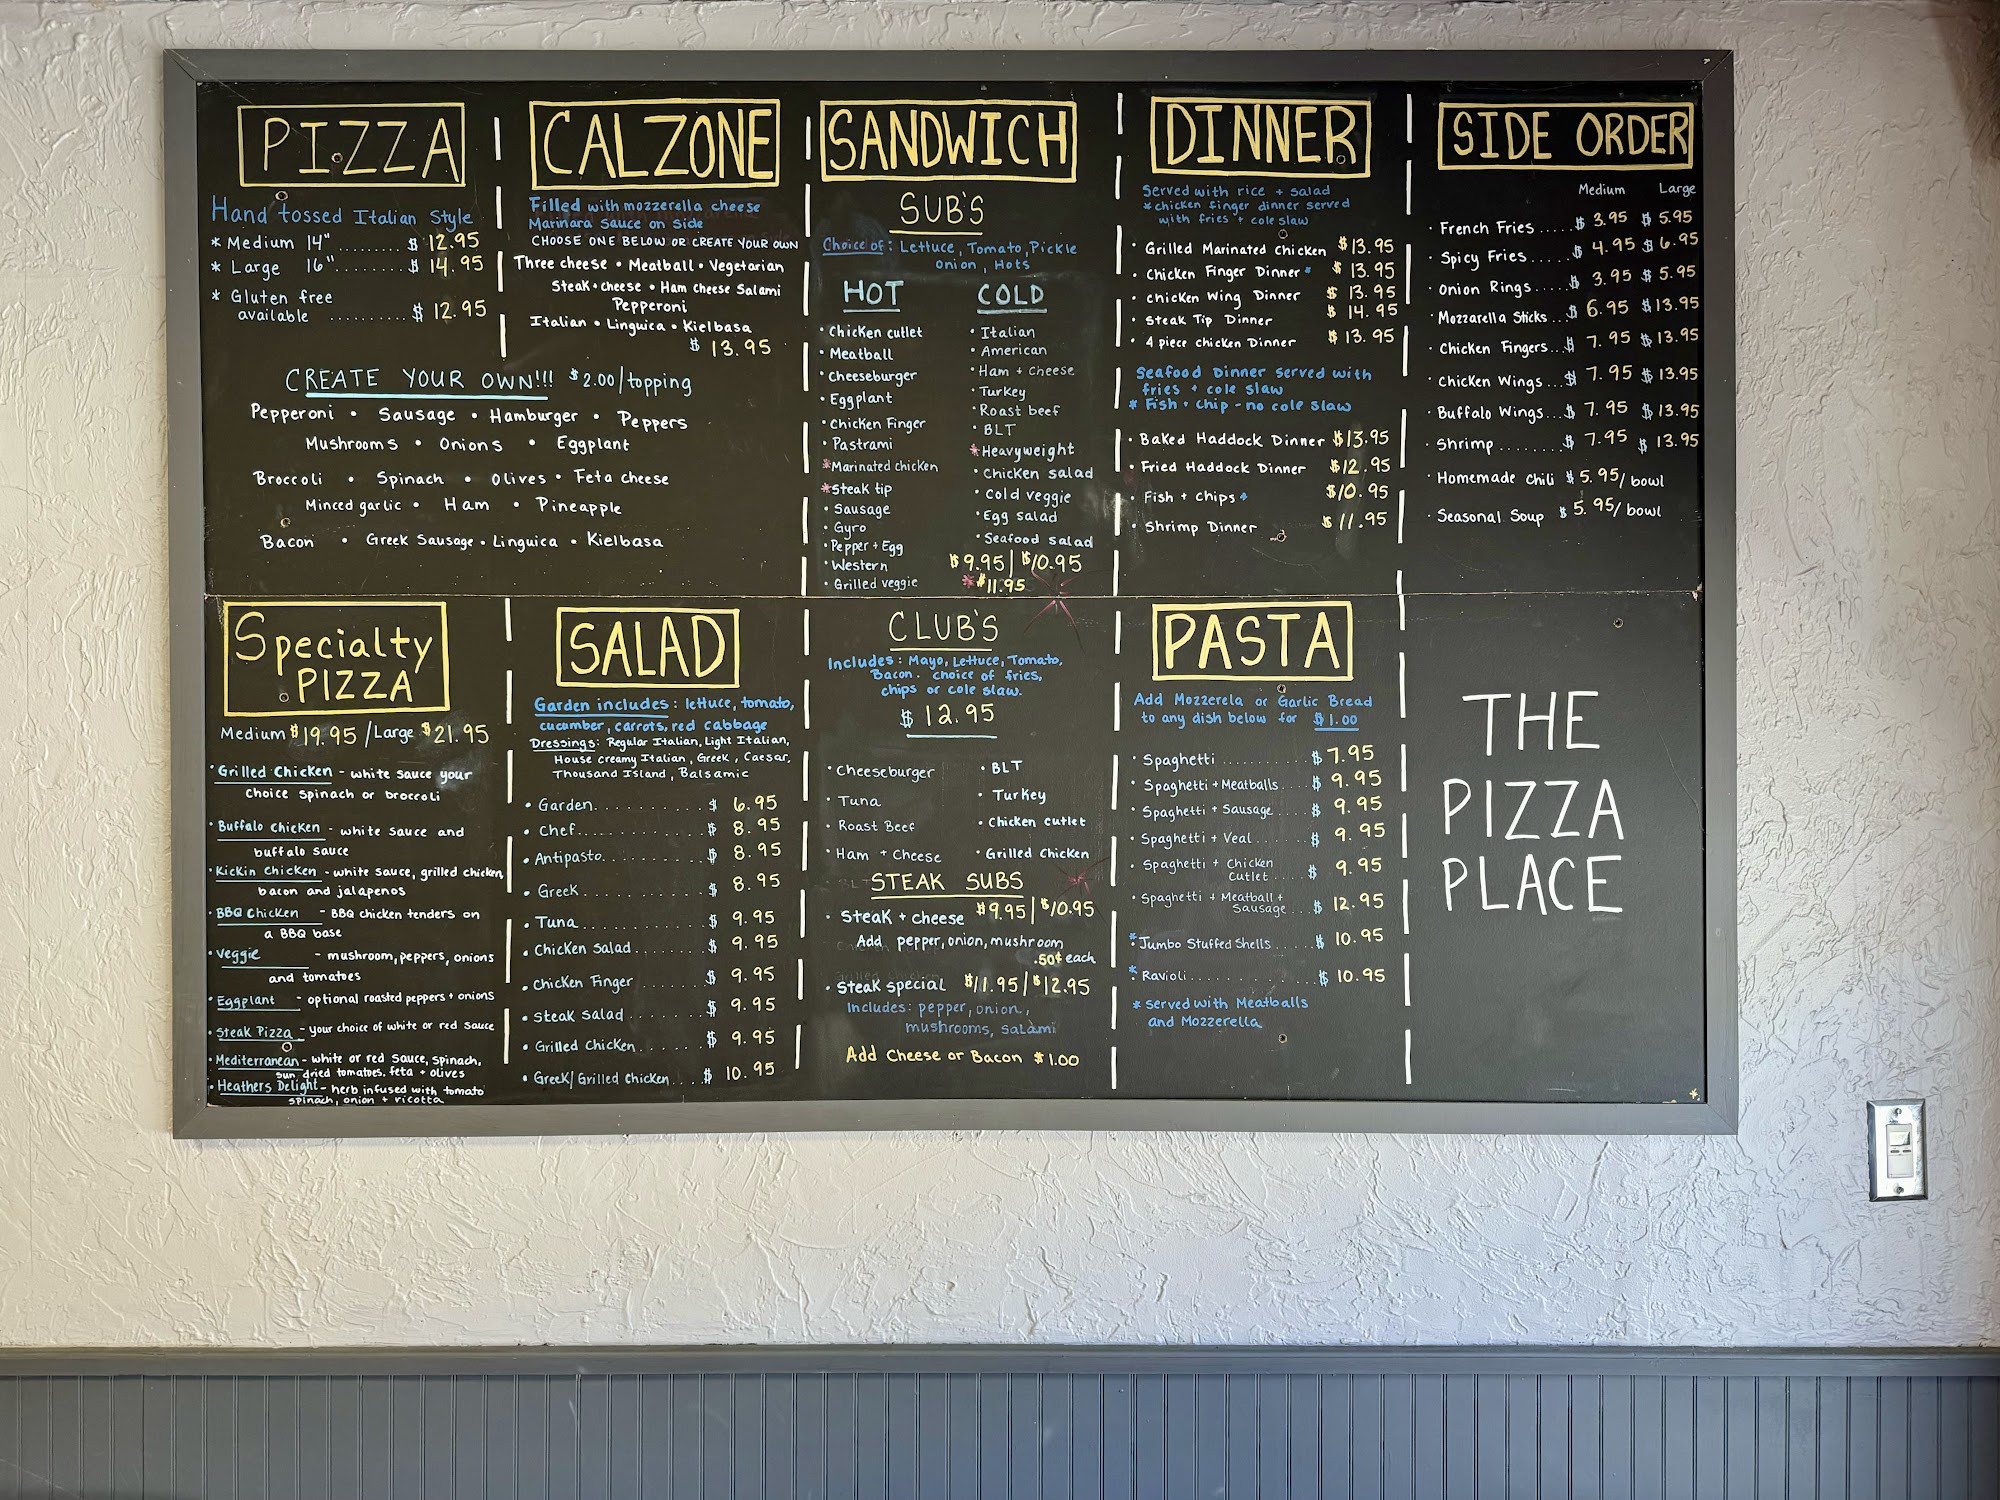 PIZZA
Hand tossed Italian Style
* Medium 14" ........ $ 12.95
* Large 16" ......... $ 14.95
* Gluten free
available .......... $ 12.95
CALZONE
Filled with mozzerella cheese
Marinara Sauce on Side
CHOOSE ONE BELOW OR CREATE YOUR OWN
Three cheese • Meatball • Vegetarian
Steak + cheese • Ham cheese Salami
Pepperoni
Italian • Linguica • Kielbasa
$ 13.95
CREATE YOUR OWN!!! $2.00/topping
Pepperoni • Sausage • Hamburger • Peppers
Mushrooms • Onions • Eggplant
Broccoli • Spinach • Olives • Feta cheese
Minced garlic • Ham • Pineapple
Bacon • Greek Sausage • Linguica • Kielbasa
SANDWICH
SUB'S
Choice of: Lettuce, Tomato, Pickle
Onion, Hots
HOT
• Chicken cutlet
• Meatball
• Cheeseburger
• Eggplant
• Chicken Finger
• Pastrami
*Marinated chicken
*Steak tip
• Sausage
• Gyro
• Pepper + Egg
• Western
• Grilled veggie
COLD
• Italian
• American
• Ham + Cheese
• Turkey
• Roast beef
• BLT
*Heavyweight
• Chicken salad
• Cold veggie
• Egg salad
• Seafood salad
$9.95 | $10.95
* $11.95
DINNER
Served with rice + salad
* chicken finger dinner served
with fries + cole slaw
• Grilled Marinated Chicken $13.95
• Chicken Finger Dinner * $ 13.95
• Chicken Wing Dinner $ 13.95
• Steak Tip Dinner $ 14.95
• 4 piece chicken Dinner $ 13.95
Seafood Dinner served with
fries + cole slaw
* Fish + chip - no cole slaw
• Baked Haddock Dinner $13.95
• Fried Haddock Dinner $12.95
• Fish + Chips * $10.95
• Shrimp Dinner $ 11.95
SIDE ORDER
Medium Large
• French Fries .... $ 3.95 $ 5.95
• Spicy Fries ..... $ 4.95 $ 6.95
• Onion Rings .... $ 3.95 $ 5.95
• Mozzarella Sticks .. $ 6.95 $13.95
• Chicken Fingers ... $ 7.95 $13.95
• Chicken Wings ... $ 7.95 $13.95
• Buffalo Wings ... $ 7.95 $13.95
• Shrimp ........ $ 7.95 $ 13.95
• Homemade Chili $ 5.95/bowl
• Seasonal Soup $ 5.95/bowl
Specialty
PIZZA
Medium $19.95 / Large $21.95
• Grilled Chicken - white sauce your
choice spinach or broccoli
• Buffalo Chicken - white sauce and
buffalo sauce
• Kickin Chicken - white sauce, grilled chicken,
bacon and jalapenos
• BBQ Chicken - BBQ chicken tenders on
a BBQ base
• Veggie - mushroom, peppers, onions
and tomatoes
• Eggplant - optional roasted peppers + onions
• Steak Pizza - your choice of white or red sauce
• Mediterranean - white or red sauce, spinach,
sun dried tomatoes. feta + olives
• Heathers Delight - herb infused with tomato
spinach, onion + ricotta
SALAD
Garden includes: lettuce, tomato,
cucumber, carrots, red cabbage
Dressings: Regular Italian, Light Italian,
House creamy Italian, Greek, Caesar,
Thousand Island, Balsamic
• Garden .......... $ 6.95
• Chef ............ $ 8.95
• Antipasto ........ $ 8.95
• Greek .......... $ 8.95
• Tuna ............ $ 9.95
• Chicken Salad ...... $ 9.95
• Chicken Finger ..... $ 9.95
• Steak Salad ....... $ 9.95
• Grilled Chicken ..... $ 9.95
• Greek/Grilled Chicken .... $ 10.95
CLUB'S
Includes: Mayo, Lettuce, Tomato,
Bacon. choice of fries,
chips or cole slaw.
$ 12.95
• Cheeseburger • BLT
• Tuna • Turkey
• Roast Beef • Chicken Cutlet
• Ham + Cheese • Grilled Chicken
STEAK SUBS
• Steak + cheese $9.95 | $10.95
Add pepper, onion, mushroom
.50¢ each
• Steak special $11.95 | $12.95
Includes: pepper, onion,
mushrooms, salami
Add Cheese or Bacon $1.00
PASTA
Add Mozzerela or Garlic Bread
to any dish below for $1.00
• Spaghetti .......... $ 7.95
• Spaghetti + Meatballs .... $ 9.95
• Spaghetti + Sausage .... $ 9.95
• Spaghetti + Veal ...... $ 9.95
• Spaghetti + Chicken
Cutlet .... $ 9.95
• Spaghetti + Meatball +
Sausage ... $ 12.95
* Jumbo Stuffed Shells ..... $ 10.95
* Ravioli ............ $ 10.95
* served with Meatballs
and Mozzerella
THE
PIZZA
PLACE